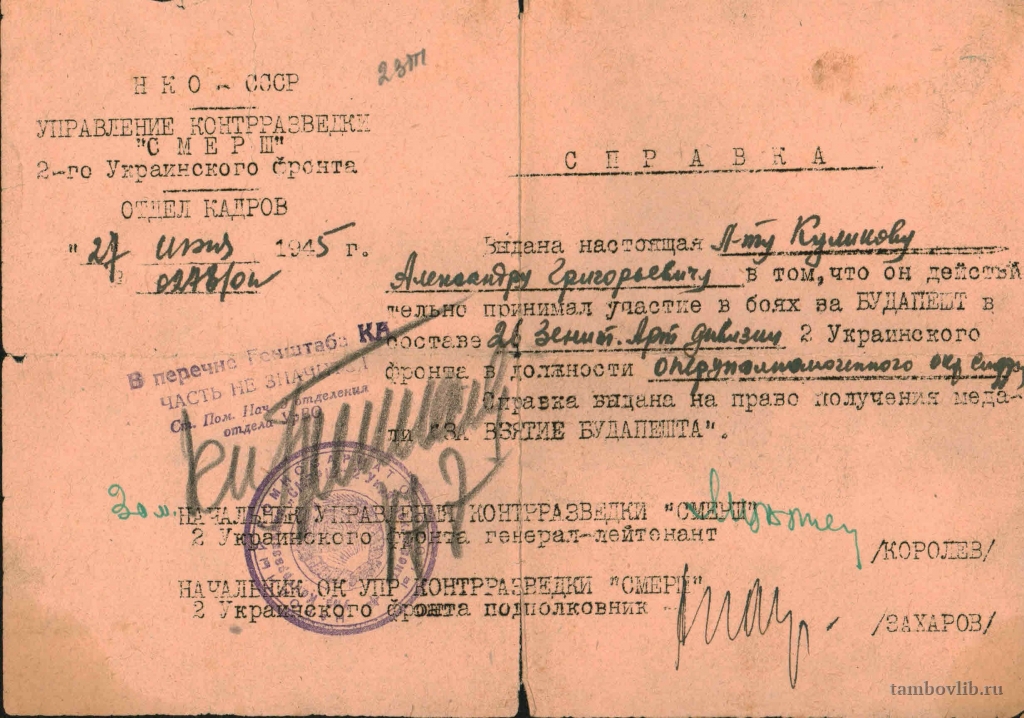 Н К О - СССР
УПРАВЛЕНИЕ КОНТРРАЗВЕДКИ
"С М Е Р Ш"
2-го Украинского фронта
ОТДЕЛ КАДРОВ
"27 1945 г.
С П Р А В К А
Выдана настоящая Л-ту Куликову
Александру Григорьевичу в том,что он действи
тельно принимал участие в боях за БУДАПЕШТ в
составе 26 Зенит. Арт дивизии 2 Украинского
фронта в должности оперуполномоченного окр
Справка выдана на право получения меда-
ли "ЗА ВЗЯТИЕ БУДАПЕШТА".
В перечне Генштаба КА
ЧАСТЬ НЕ ЗНАЧИТСЯ
Ст. Пом. Нач. отделения
отдела
Зам. НАЧАЛЬНИК УПРАВЛЕНИЯ КОНТРРАЗВЕДКИ "СМЕРШ"
2 Украинского фронта генерал-лейтенант
/КОРОЛЕВ/
НАЧАЛЬНИК ОК УПР КОНТРРАЗВЕДКИ "СМЕРШ"
2 Украинского фронта подполковник
/ЗАХАРОВ/
tambovlib.ru